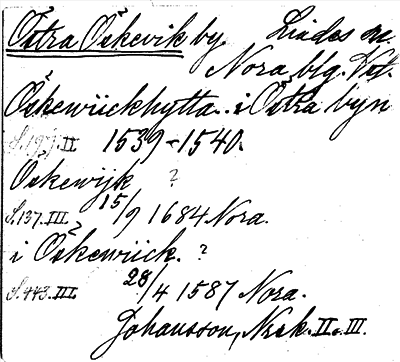 Östra Öskevik by Lindes sn.
Nora blg. Vst.
Öskewiickhytta.. i Östra byn
S.197.II 1539-1540.
Öskewijk ?
S.137.III. 15/9 1684 Nora.
i Öskewiick. ?
S.443.III. 28/4 1587 Nora.
Johansson, Nrsk. II o. III.